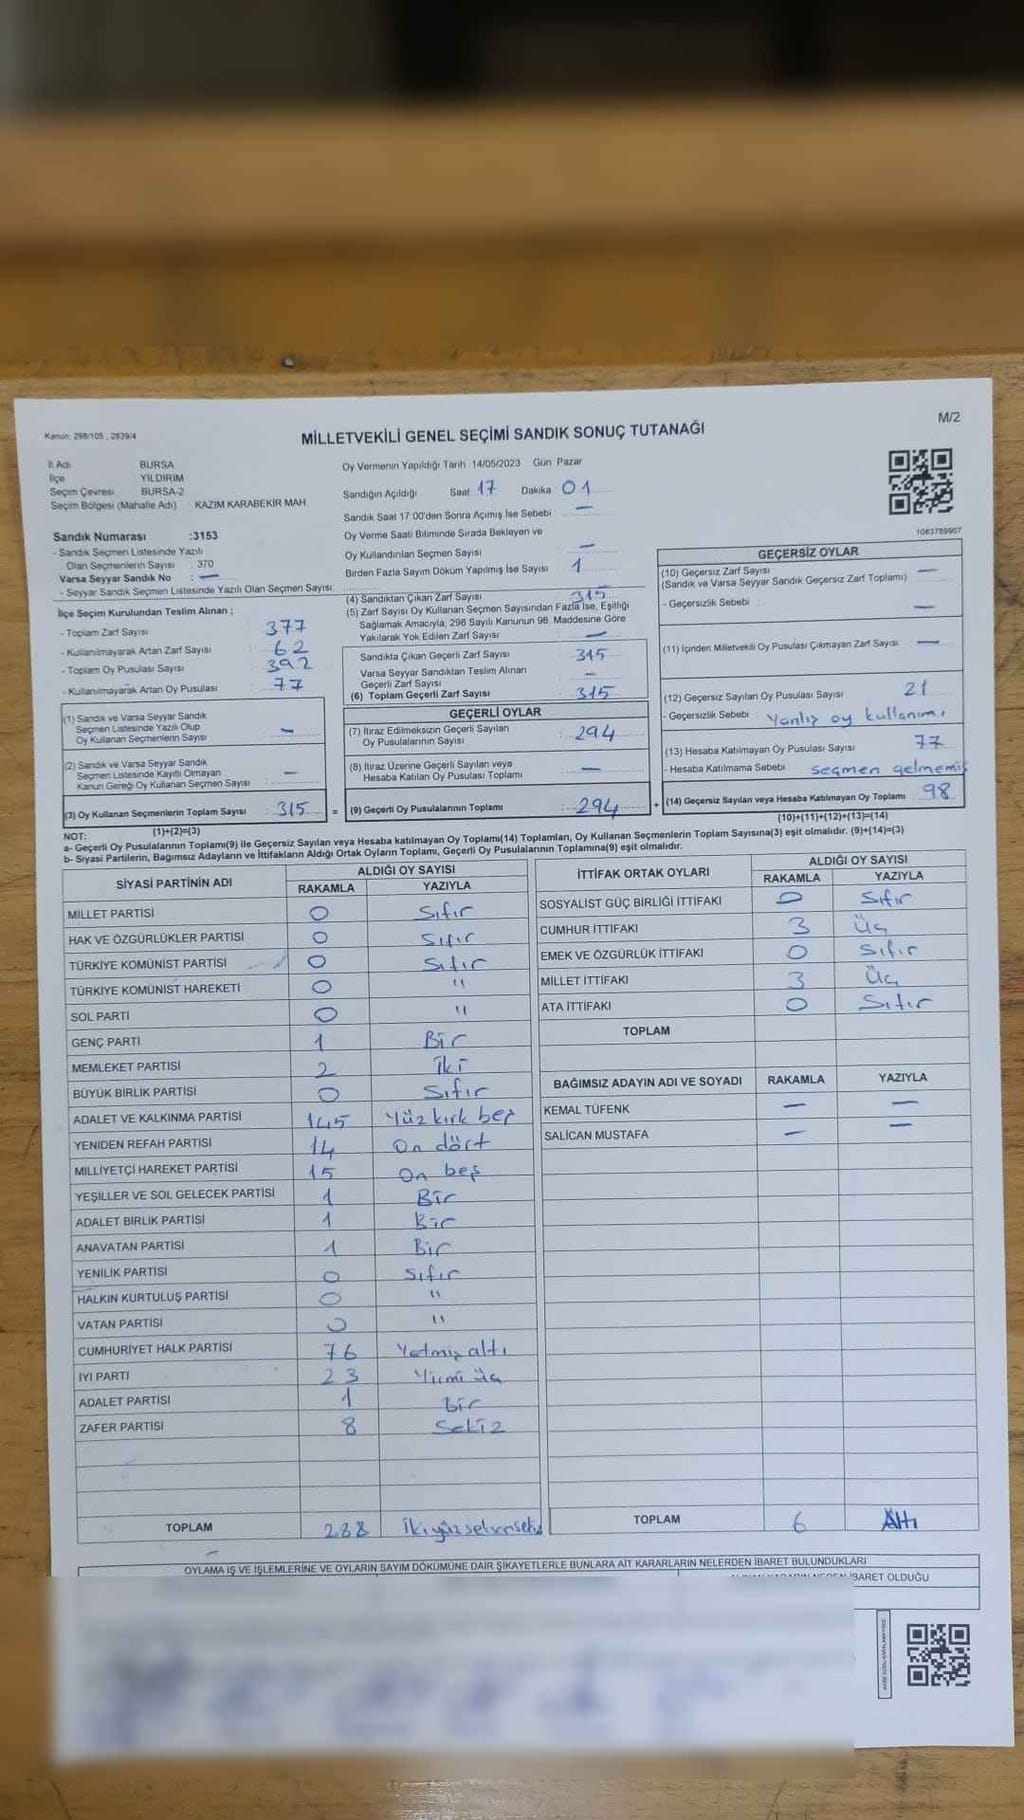 Kanun: 298/105 , 2839/4
M/2
MİLLETVEKİLİ GENEL SEÇİMİ SANDIK SONUÇ TUTANAĞI
İl Adı BURSA
İlçe YILDIRIM
Seçim Çevresi BURSA-2
Seçim Bölgesi (Mahalle Adı) KAZIM KARABEKİR MAH.
Oy Vermenin Yapıldığı Tarih :14/05/2023 Gün :Pazar
Sandığın Açıldığı Saat 17 Dakika 01
Sandık Saat 17:00'den Sonra Açılmış İse Sebebi : —
Oy Verme Saati Bitiminde Sırada Bekleyen ve
Oy Kullandırılan Seçmen Sayısı —
Birden Fazla Sayım Döküm Yapılmış İse Sayısı 1
1063789907
Sandık Numarası :3153
- Sandık Seçmen Listesinde Yazılı
Olan Seçmenlerin Sayısı : 370
Varsa Seyyar Sandık No : —
- Seyyar Sandık Seçmen Listesinde Yazılı Olan Seçmen Sayısı:
İlçe Seçim Kurulundan Teslim Alınan ;
- Toplam Zarf Sayısı 377
- Kullanılmayarak Artan Zarf Sayısı 62
- Toplam Oy Pusulası Sayısı 392
- Kullanılmayarak Artan Oy Pusulası 77
(1) Sandık ve Varsa Seyyar Sandık
Seçmen Listesinde Yazılı Olup
Oy Kullanan Seçmenlerin Sayısı —
(2) Sandık ve Varsa Seyyar Sandık
Seçmen Listesinde Kayıtlı Olmayan
Kanun Gereği Oy Kullanan Seçmen Sayısı —
(3) Oy Kullanan Seçmenlerin Toplam Sayısı : 315
(1)+(2)=(3)
(4) Sandıktan Çıkan Zarf Sayısı 315
(5) Zarf Sayısı Oy Kullanan Seçmen Sayısından Fazla İse, Eşitliği
Sağlamak Amacıyla; 298 Sayılı Kanunun 98. Maddesine Göre
Yakılarak Yok Edilen Zarf Sayısı —
Sandıkta Çıkan Geçerli Zarf Sayısı 315
Varsa Seyyar Sandıktan Teslim Alınan
Geçerli Zarf Sayısı —
(6) Toplam Geçerli Zarf Sayısı 315
GEÇERLİ OYLAR
(7) İtiraz Edilmeksizin Geçerli Sayılan
Oy Pusulalarının Sayısı : 294
(8) İtiraz Üzerine Geçerli Sayılan veya
Hesaba Katılan Oy Pusulası Toplamı —
= (9) Geçerli Oy Pusulalarının Toplamı : 294
GEÇERSİZ OYLAR
(10) Geçersiz Zarf Sayısı
(Sandık ve Varsa Seyyar Sandık Geçersiz Zarf Toplamı) —
- Geçersizlik Sebebi : —
(11) İçinden Milletvekili Oy Pusulası Çıkmayan Zarf Sayısı —
(12) Geçersiz Sayılan Oy Pusulası Sayısı 21
- Geçersizlik Sebebi : Yanlış oy kullanımı
(13) Hesaba Katılmayan Oy Pusulası Sayısı 77
- Hesaba Katılmama Sebebi seçmen gelmemiş
+ (14) Geçersiz Sayılan veya Hesaba Katılmayan Oy Toplamı 98
(10)+(11)+(12)+(13)=(14)
NOT:
a- Geçerli Oy Pusulalarının Toplamı(9) ile Geçersiz Sayılan veya Hesaba katılmayan Oy Toplamı(14) Toplamları, Oy Kullanan Seçmenlerin Toplam Sayısına(3) eşit olmalıdır. (9)+(14)=(3)
b- Siyasi Partilerin, Bağımsız Adayların ve İttifakların Aldığı Ortak Oyların Toplamı, Geçerli Oy Pusulalarının Toplamına(9) eşit olmalıdır.
SİYASİ PARTİNİN ADI ALDIĞI OY SAYISI
RAKAMLA YAZIYLA
MİLLET PARTİSİ 0 Sıfır
HAK VE ÖZGÜRLÜKLER PARTİSİ 0 Sıfır
TÜRKİYE KOMÜNİST PARTİSİ 0 Sıfır
TÜRKİYE KOMÜNİST HAREKETİ 0 "
SOL PARTİ 0 "
GENÇ PARTİ 1 Bir
MEMLEKET PARTİSİ 2 İki
BÜYÜK BİRLİK PARTİSİ 0 Sıfır
ADALET VE KALKINMA PARTİSİ 145 Yüz kırk beş
YENİDEN REFAH PARTİSİ 14 On dört
MİLLİYETÇİ HAREKET PARTİSİ 15 On beş
YEŞİLLER VE SOL GELECEK PARTİSİ 1 Bir
ADALET BİRLİK PARTİSİ 1 Bir
ANAVATAN PARTİSİ 1 Bir
YENİLİK PARTİSİ 0 sıfır
HALKIN KURTULUŞ PARTİSİ 0 "
VATAN PARTİSİ 0 "
CUMHURİYET HALK PARTİSİ 76 Yetmiş altı
İYİ PARTİ 23 Yirmi üç
ADALET PARTİSİ 1 Bir
ZAFER PARTİSİ 8 Sekiz
TOPLAM 288 İkiyüz seksensekiz
İTTİFAK ORTAK OYLARI ALDIĞI OY SAYISI
RAKAMLA YAZIYLA
SOSYALİST GÜÇ BİRLİĞİ İTTİFAKI 0 Sıfır
CUMHUR İTTİFAKI 3 Üç
EMEK VE ÖZGÜRLÜK İTTİFAKI 0 Sıfır
MİLLET İTTİFAKI 3 Üç
ATA İTTİFAKI 0 Sıfır
TOPLAM
BAĞIMSIZ ADAYIN ADI VE SOYADI RAKAMLA YAZIYLA
KEMAL TÜFENK — —
SALİCAN MUSTAFA — —
TOPLAM 6 Altı
OYLAMA İŞ VE İŞLEMLERİNE VE OYLARIN SAYIM DÖKÜMÜNE DAİR ŞİKAYETLERLE BUNLARA AİT KARARLARIN NELERDEN İBARET BULUNDUKLARI
İBARET OLDUĞU